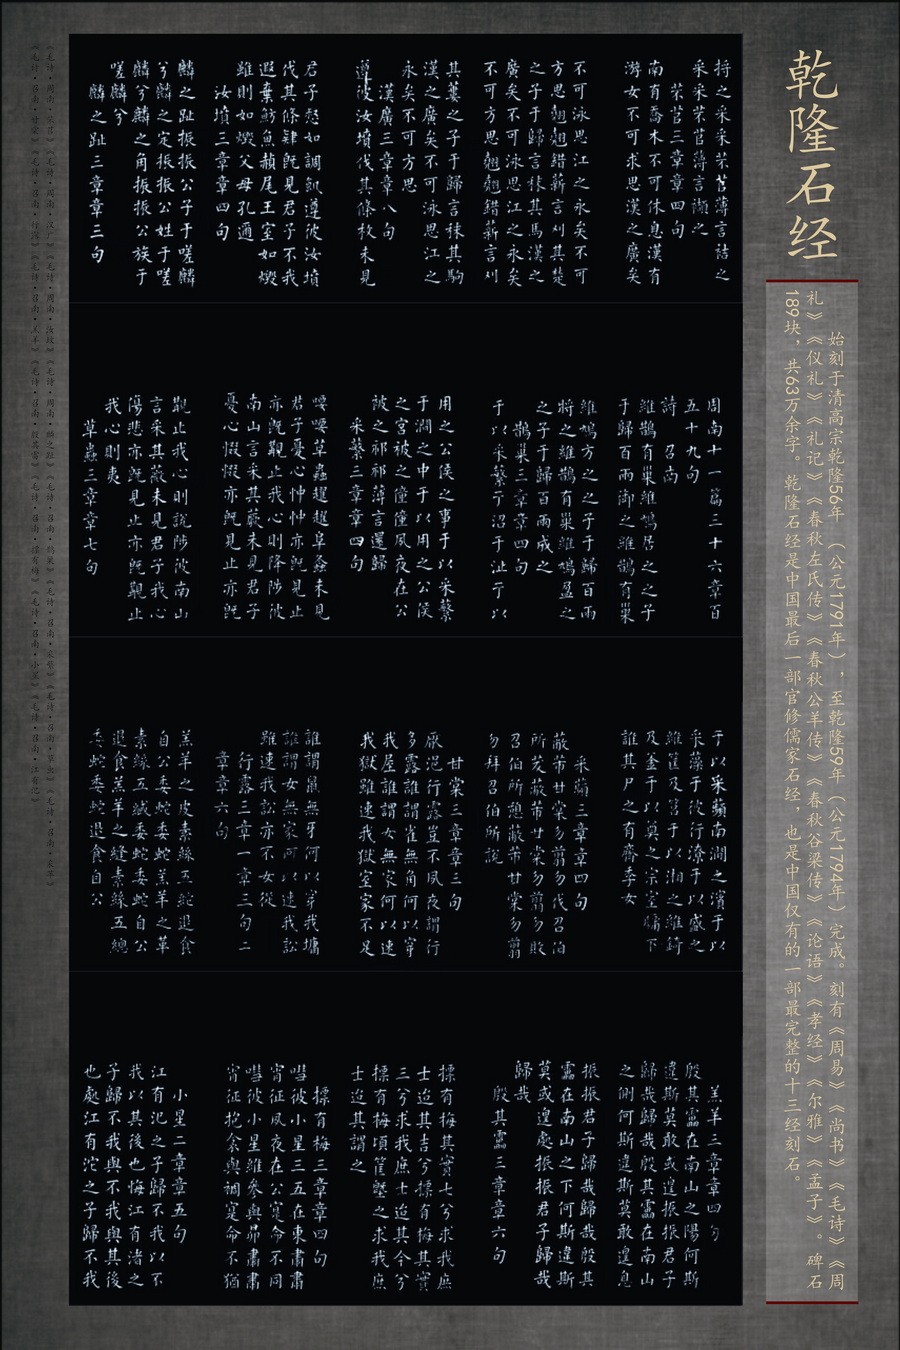 乾隆石经
始刻于清高宗乾隆56年（公元1791年），至乾隆59年（公元1794年）完成。刻有《周易》《尚书》《毛诗》《周
礼》《仪礼》《礼记》《春秋左氏传》《春秋公羊传》《春秋谷梁传》《论语》《孝经》《尔雅》《孟子》。碑石
189块，共63万余字。乾隆石经是中国最后一部官修儒家石经，也是中国仅有的一部最完整的十三经刻石。
捋之采采芣苢薄言袺之
采采芣苢薄言襭之
芣苢三章章四句
南有喬木不可休息漢有
游女不可求思漢之廣矣
不可泳思江之永矣不可
方思翹翹錯薪言刈其楚
之子于歸言秣其馬漢之
廣矣不可泳思江之永矣
不可方思翹翹錯薪言刈
其蔞之子于歸言秣其駒
漢之廣矣不可泳思江之
永矣不可方思
漢廣三章章八句
遵彼汝墳伐其條枚未見
君子惄如調飢遵彼汝墳
伐其條肄旣見君子不我
遐棄魴魚赬尾王室如燬
雖則如燬父母孔邇
汝墳三章章四句
麟之趾振振公子于嗟麟
兮麟之定振振公姓于嗟
麟兮麟之角振振公族于
嗟麟兮
麟之趾三章章三句
周南十一篇三十六章百
五十九句
詩 召南
維鵲有巢維鳩居之之子
于歸百兩御之維鵲有巢
維鳩方之之子于歸百兩
將之維鵲有巢維鳩盈之
之子于歸百兩成之
鵲巢三章章四句
于以采蘩于沼于沚于以
用之公侯之事于以采蘩
于澗之中于以用之公侯
之宮被之僮僮夙夜在公
被之祁祁薄言還歸
采蘩三章章四句
喓喓草蟲趯趯阜螽未見
君子憂心忡忡亦旣見止
亦旣覯止我心則降陟彼
南山言采其蕨未見君子
憂心惙惙亦旣見止亦旣
覯止我心則說陟彼南山
言采其薇未見君子我心
傷悲亦旣見止亦旣覯止
我心則夷
草蟲三章章七句
于以采蘋南澗之濱于以
采藻于彼行潦于以盛之
維筐及筥于以湘之維錡
及釜于以奠之宗室牖下
誰其尸之有齊季女
采蘋三章章四句
蔽芾甘棠勿翦勿伐召伯
所茇蔽芾甘棠勿翦勿敗
召伯所憩蔽芾甘棠勿翦
勿拜召伯所說
甘棠三章章三句
厭浥行露豈不夙夜謂行
多露誰謂雀無角何以穿
我屋誰謂女無家何以速
我獄雖速我獄室家不足
誰謂鼠無牙何以穿我墉
誰謂女無家何以速我訟
雖速我訟亦不女從
行露三章一章三句二
章章六句
羔羊之皮素絲五紽退食
自公委蛇委蛇羔羊之革
素絲五緎委蛇委蛇自公
退食羔羊之縫素絲五總
委蛇委蛇退食自公
羔羊三章章四句
殷其靁在南山之陽何斯
違斯莫敢或遑振振君子
歸哉歸哉殷其靁在南山
之側何斯違斯莫敢遑息
振振君子歸哉歸哉殷其
靁在南山之下何斯違斯
莫或遑處振振君子歸哉
歸哉
殷其靁三章章六句
摽有梅其實七兮求我庶
士迨其吉兮摽有梅其實
三兮求我庶士迨其今兮
摽有梅頃筐塈之求我庶
士迨其謂之
摽有梅三章章四句
嘒彼小星三五在東肅肅
宵征夙夜在公寔命不同
嘒彼小星維參與昴肅肅
宵征抱衾與裯寔命不猶
小星二章章五句
江有汜之子歸不我以不
我以其後也悔江有渚之
子歸不我與不我與其後
也處江有沱之子歸不我